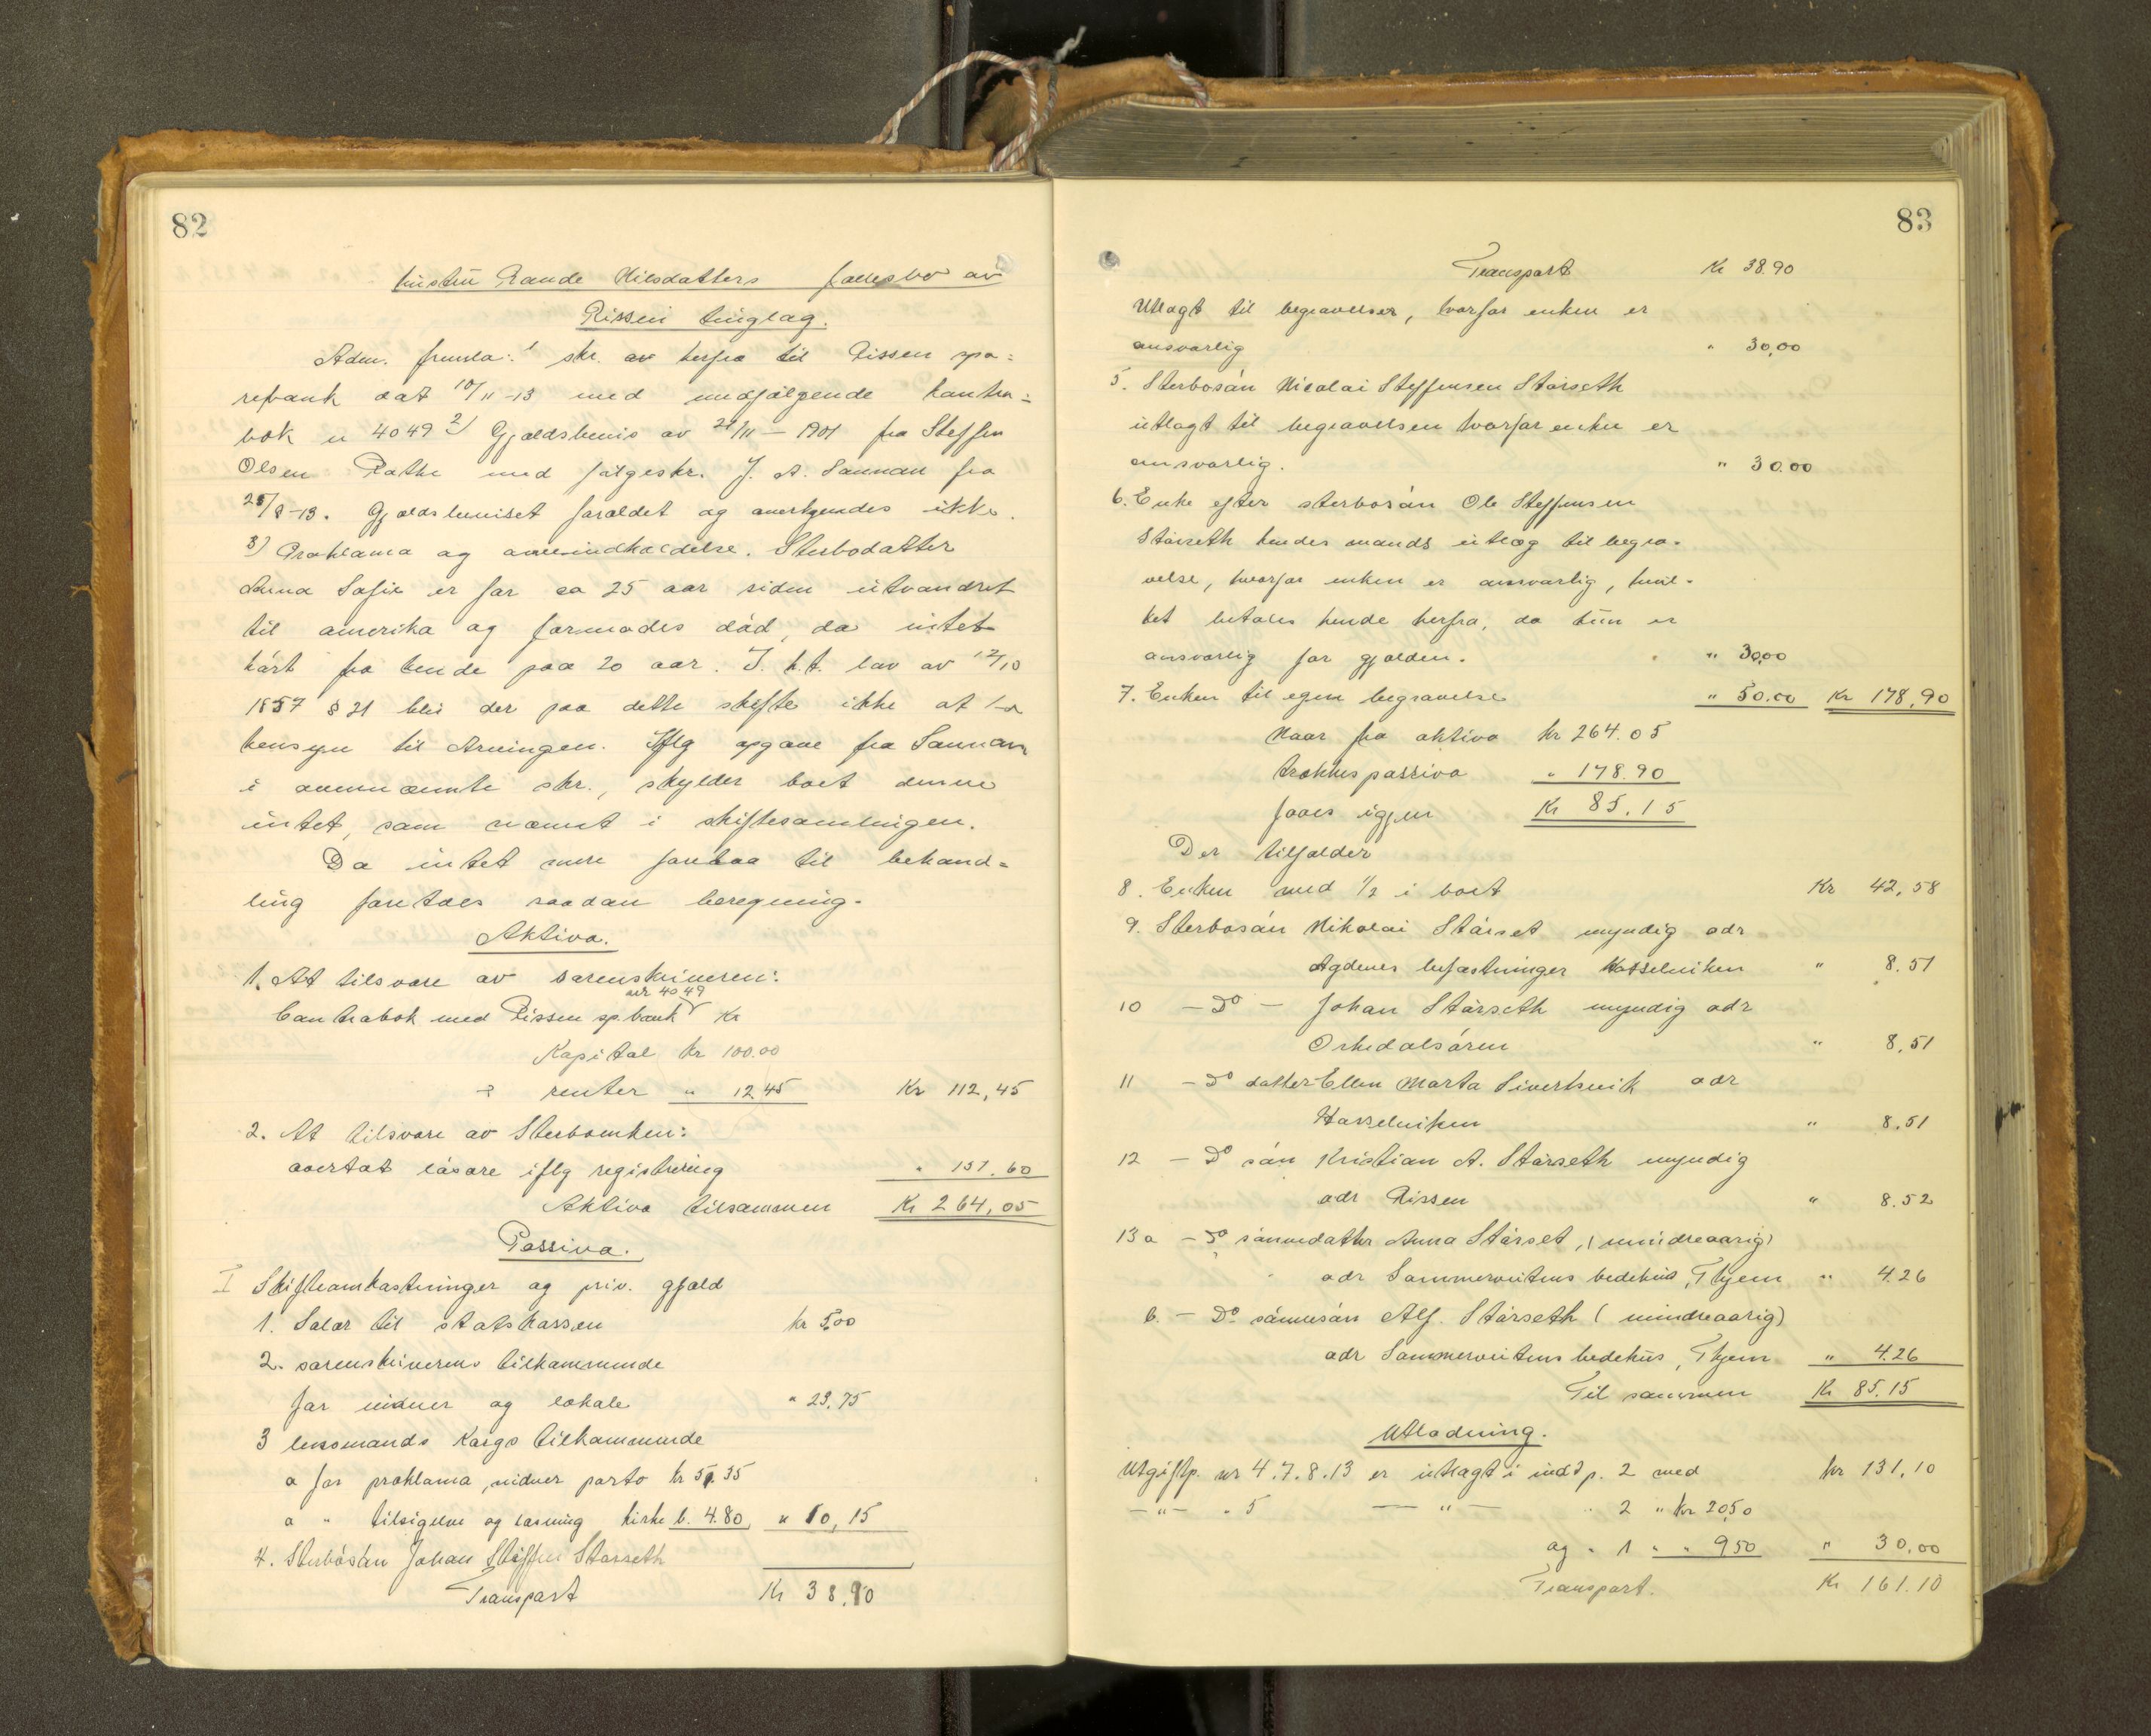 82
hustru Rande Nilsdatters fællesbo av
Rissen tinglag.
Adm. fremla: 1 skr. av herfra til Rissen spa=
rebank dat 10/11-13 med medfølgende kontra=
bok nr 4049 2) Gjældsbevis av 21/11 - 1901 fra Steffen
Olsen Rathe med følgeskr. J. A. Sannan fra
25/8-13. Gjældsbeviset forældet og anerkjendes ikke.
3) Proklama og Sterbodatter
Anna Sofie er for ca 25 aar siden utvandret
til amerika og formodes død, da intet
hørt fra hende paa 20 aar. I. h.t. lov av 12/10
1857 § 21 blir der paa dette skifte ikke at ta
hensyn til Arvingen. Iflg opgave fra Sannan
i ovennævnte skr., skylder boet denne
intet, som nævnt i skiftesamlingen.
Da intet mere forelaa til behand=
ling foretoes saadan beregning.
Aktiva.
1. At tilsvare av sorenskriveren:
nr 4049
Contrabok med Rissen sp.bank Kr
Kapital kr 100.00
renter " 12.45 Kr 112,45
2. At tilsvare av Sterboenken:
overtat løsøre iflg registrering " 151.60
Aktiva tilsammen Kr 264,05
Passiva.
I Skifteomkostninger og priv. gjæld
1. Salær til statskassen kr 5,00
2. sorenskriverens tilkommende
for vidner og lokale " 23,75
3 lensmands Kargs tilkommende
a for proklama, vidner porto kr 5,35
a " tilsigelse og læsning kirke b. 4.80 " 10,15
4. Sterbosøn Johan Steffen Størseth
Transport Kr 38,90
83
Transport Kr 38.90
Utlagt til begravelser, hvorfor enken er
ansvarlig " 30,00
5. Sterbosøn Nicolai Steffensen Størseth
utlagt til begravelsen hvorfor enken er
ansvarlig. " 30.00
6. Enke efter sterbosøn Ole Steffensen
Størseth hendes mands utlæg til begra-
velse, hvorfor enken er ansvarlig, hvil-
ket betales hende herfra, da hun er
ansvarlig for gjælden. " 30,00
7. Enken til egen begravelse " 50.00 Kr 178,90
Naar fra aktiva kr 264.05
trækkes passiva " 178.90
faaes igjen Kr 85.15
Der tilfalder
8. Enken med 1/2 i boet Kr 42,58
9. Sterbosøn Nikolai Størset myndig adr
Agdenes befæstninger Hasselviken " 8.51
10 - Do - Johan Størseth myndig adr
Orkedalsøren " 8,51
11 - Do datter Ellen Marta Sivertsvik adr
Hasselviken " 8.51
12 - Do søn Kristian A. Størseth myndig
adr Rissen " 8.52
13 a - Do sønnedatter Anna Størset, (mindreaarig)
adr Sammerveitens bedehus, Thjem " 4.26
b. - Do. sønnesøn Alf. Størseth (mindreaarig)
adr Sammerveitens bedehus, Thjem " 4.26
Til sammen Kr 85.15
Utlodning.
Utgiftp. nr 4.7.8.13 er utlagt i indt p. 2 med kr 131,10
- " - " 5 - " - " 2 " kr 20,50
og " 1 " " 9,50 " 30,00
Transport. Kr 161.10